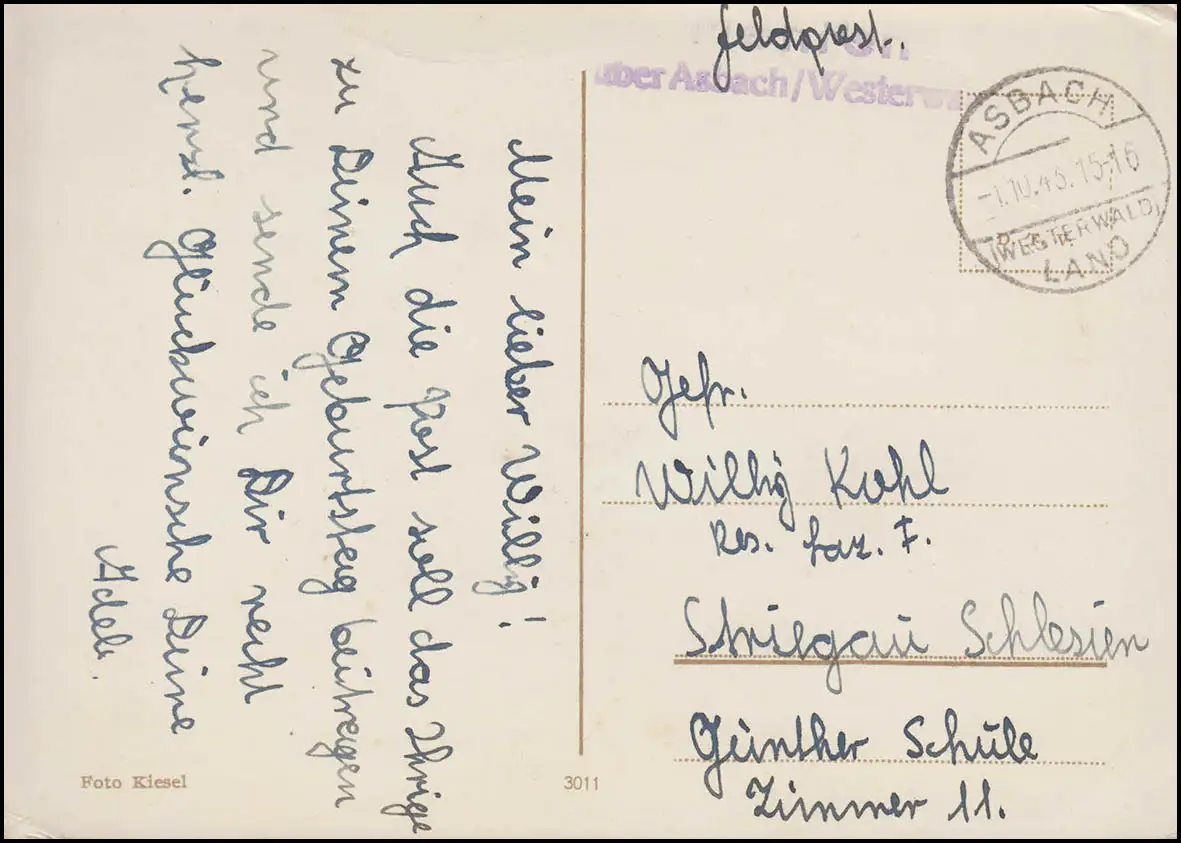 Feldpost.
über Asbach/Westerwa
ASBACH
-1.10.43.15-16
(WESTERWALD)
LAND
Mein lieber Willy!
Auch die Post soll das Ihrige
zu Deinem Geburtstag beitragen
und sende ich Dir recht
herzl. Glückwünsche Deine
Adele.
Gefr.
Willy Kohl
Res. Laz. I.
Striegau Schlesien
Günther Schule
Zimmer 11.
Foto Kiesel
3011